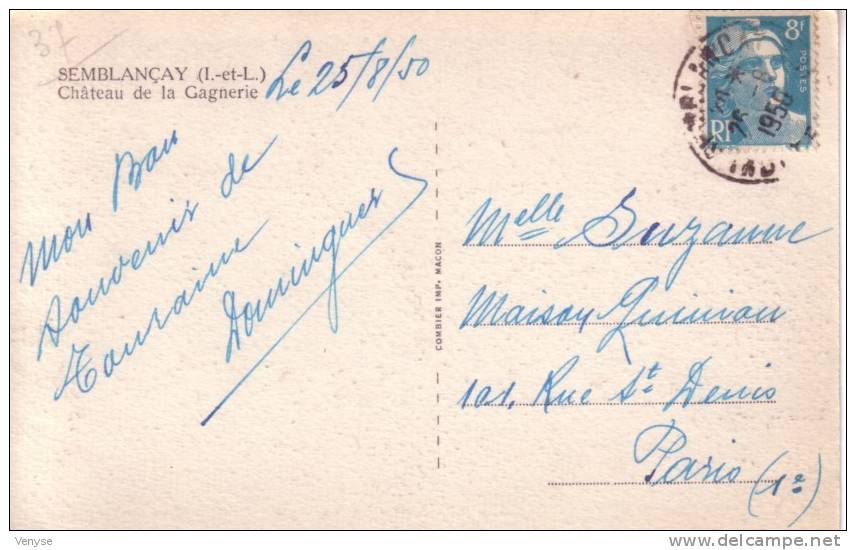 37
SEMBLANÇAY (I.-et-L.)
Château de la Gagnerie
Le 25/8/50
Mon Bon
Souvenir de
Touraine
Dominguez
COMBIER IMP. MACON
8f
POSTES
RF
26 -8
1950
Melle Suzanne
Maison Quinion
101, Rue St Denis
Paris (1e)
Venyse
delcampe.net